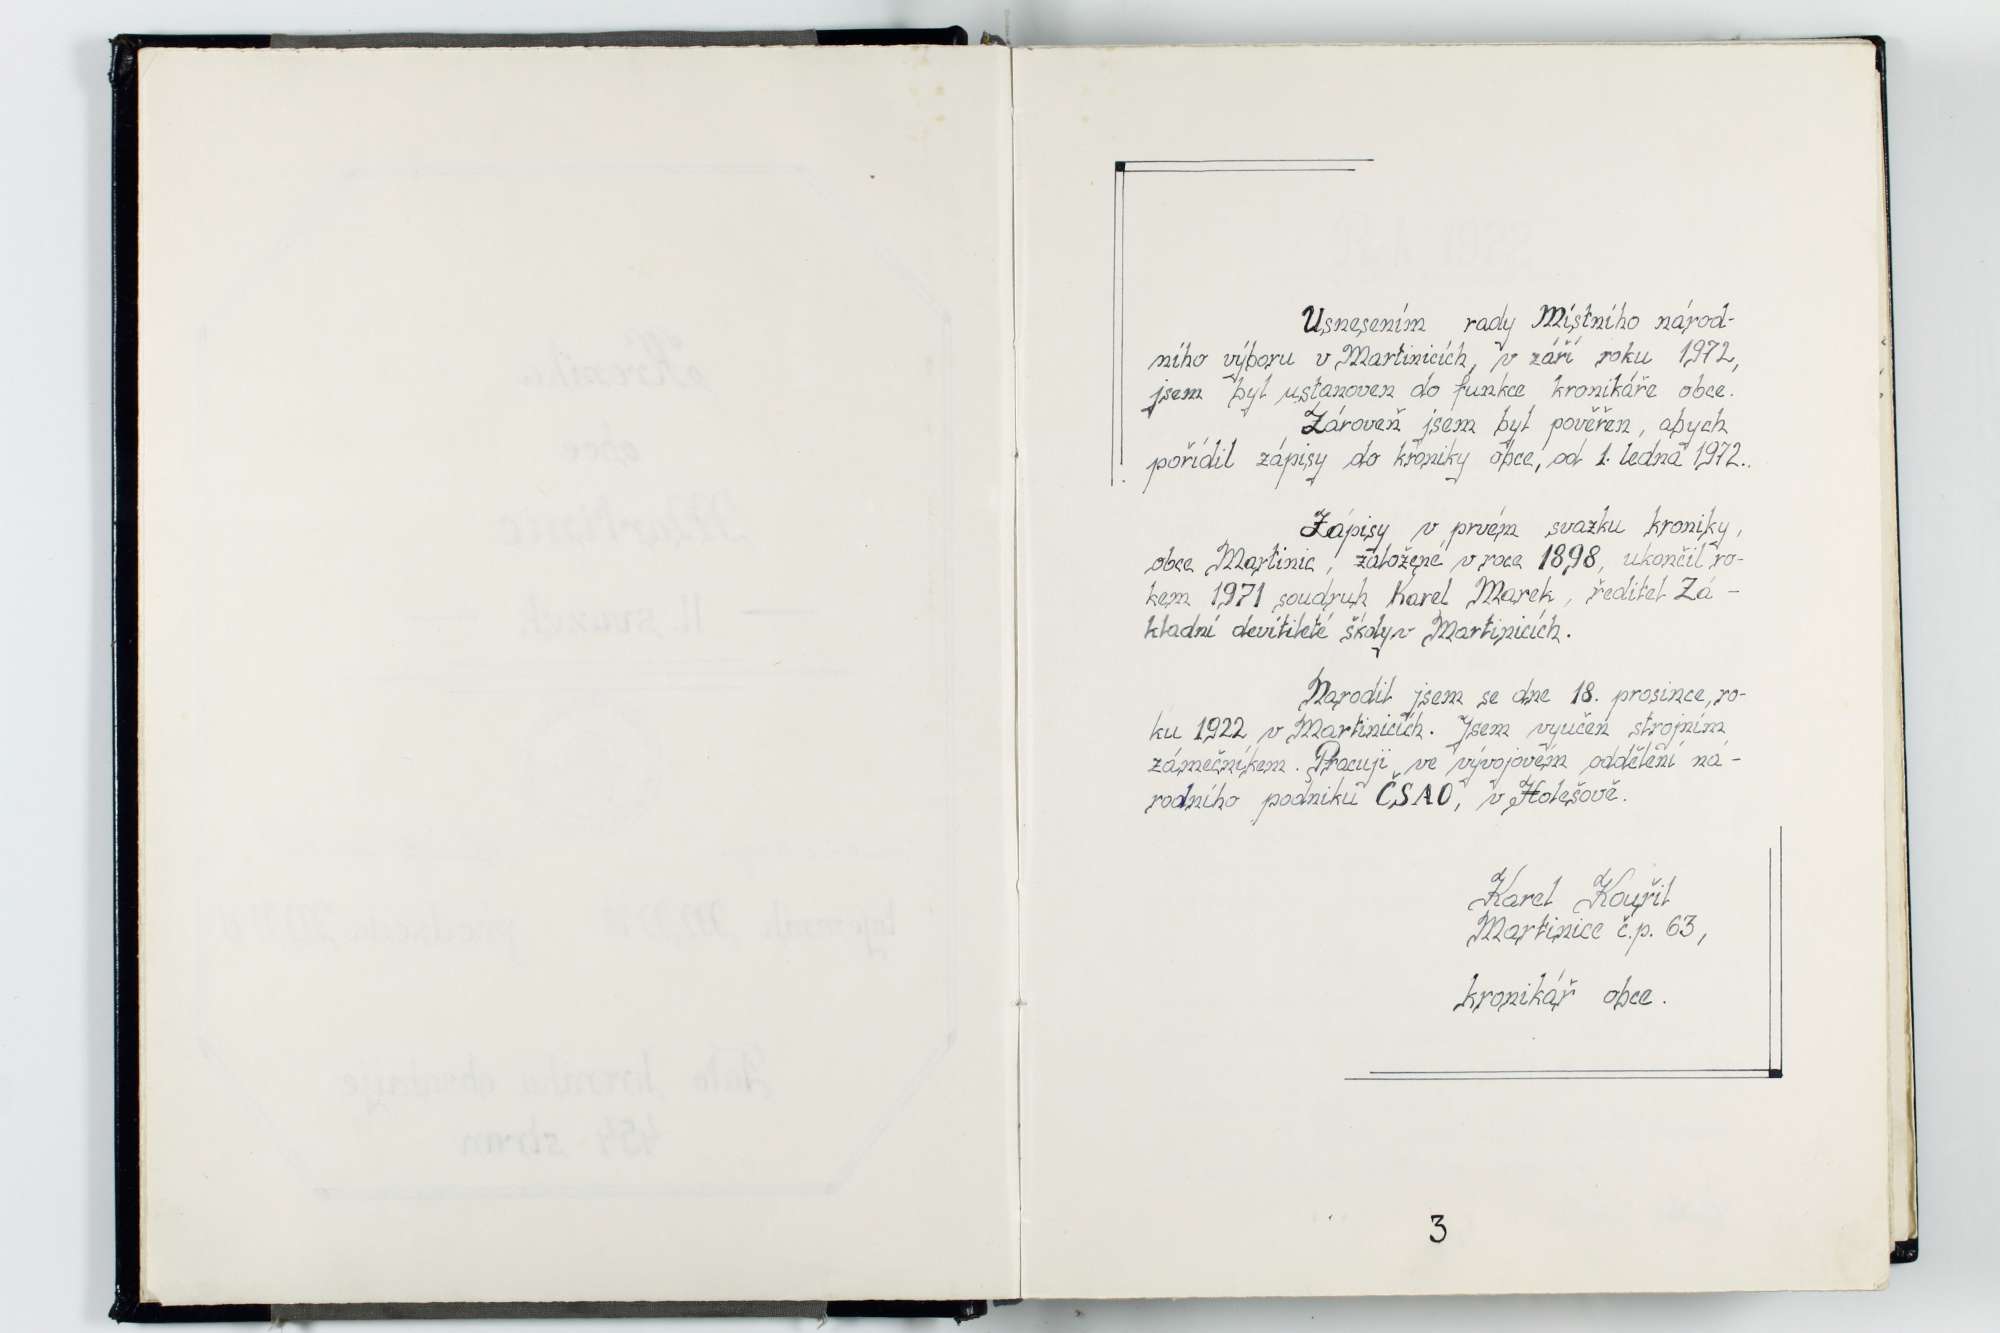 Usnesením rady Místního národ-
ního výboru v Martinicích, v září roku 1972,
jsem byl ustanoven do funkce kronikáře obce.
Zároveň jsem byl pověřen, abych
pořídil zápisy do kroniky obce, od 1. ledna 1972.
Zápisy v prvém svazku kroniky,
obce Martinic, založené v roce 1898, ukončil ro-
kem 1971 soudruh Karel Marek, ředitel Zá-
kladní devítileté školy v Martinicích.
Narodil jsem se dne 18. prosince, ro-
ku 1922 v Martinicích. Jsem vyučen strojním
zámečníkem. Pracuji ve vývojovém oddělení ná-
rodního podniku ČSAO, v Holešově.
Karel Kouřil
Martinice č.p. 63,
kronikář obce.
3